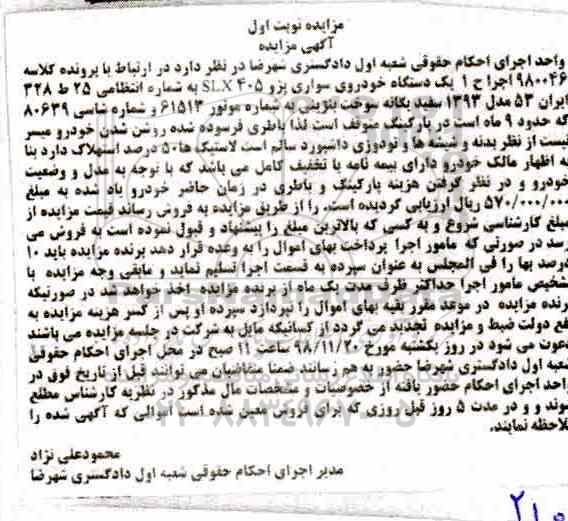 مزایده نوبت اول
آگهی مزایده
واحد اجرای احکام حقوقی شعبه اول دادگستری شهرضا در نظر دارد در ارتباط با پرونده کلاسه
۹۸۰۰۴۶ اجرا ح ۱ یک دستگاه خودروی سواری پژو ۴۰۵ SLX به شماره انتظامی ۲۵ ط ۳۲۸
ایران ۵۳ مدل ۱۳۹۳ سفید یگانه سوخت بنزینی به شماره موتور ۶۱۵۱۳ و شماره شاسی ۸۰۶۳۹
که حدود ۹ ماه است در پارکینگ متوقف است لذا باطری فرسوده شده روشن شدن خودرو میسر
نیست از نظر بدنه و شیشه ها و تودوزی داشبورد سالم است لاستیک ها ۵۰ درصد استهلاک دارد بنا
به اظهار مالک خودرو دارای بیمه نامه با تخفیف کامل می باشد که با توجه به مدل و وضعیت
خودرو و در نظر گرفتن هزینه پارکینگ و باطری در زمان حاضر خودرو یاد شده به مبلغ
۵۷۰/۰۰۰/۰۰۰ ریال ارزیابی گردیده است. را از طریق مزایده به فروش رساند قیمت مزایده از
مبلغ کارشناسی شروع و به کسی که بالاترین مبلغ را پیشنهاد و قبول نموده است به فروش می
رسد در صورتی که مامور اجرا پرداخت بهای اموال را به وعده قرار دهد برنده مزایده باید ۱۰
درصد بها را فی المجلس به عنوان سپرده به قسمت اجرا تسلیم نماید و مابقی وجه مزایده با
تشخیص مامور اجرا حداکثر ظرف مدت یک ماه از برنده مزایده اخذ خواهد شد در صورتیکه
برنده مزایده در موعد مقرر بقیه بهای اموال را نپردازد سپرده او پس از کسر هزینه مزایده به
نفع دولت ضبط و مزایده تجدید می گردد از کسانیکه مایل به شرکت در جلسه مزایده می باشند
دعوت می شود در روز یکشنبه مورخ ۹۸/۱۱/۲۰ ساعت ۱۱ صبح در محل اجرای احکام حقوقی
شعبه اول دادگستری شهرضا حضور به هم رسانند ضمنا متقاضیان می توانند قبل از تاریخ فوق در
واحد اجرای احکام حضور یافته از خصوصیات و مشخصات مال مذکور در نظریه کارشناس مطلع
شوند و و در مدت ۵ روز قبل روزی که برای فروش معین شده است اموالی که آگهی شده را
ملاحظه نمایند.
محمودعلی نژاد
مدیر اجرای احکام حقوقی شعبه اول دادگستری شهرضا